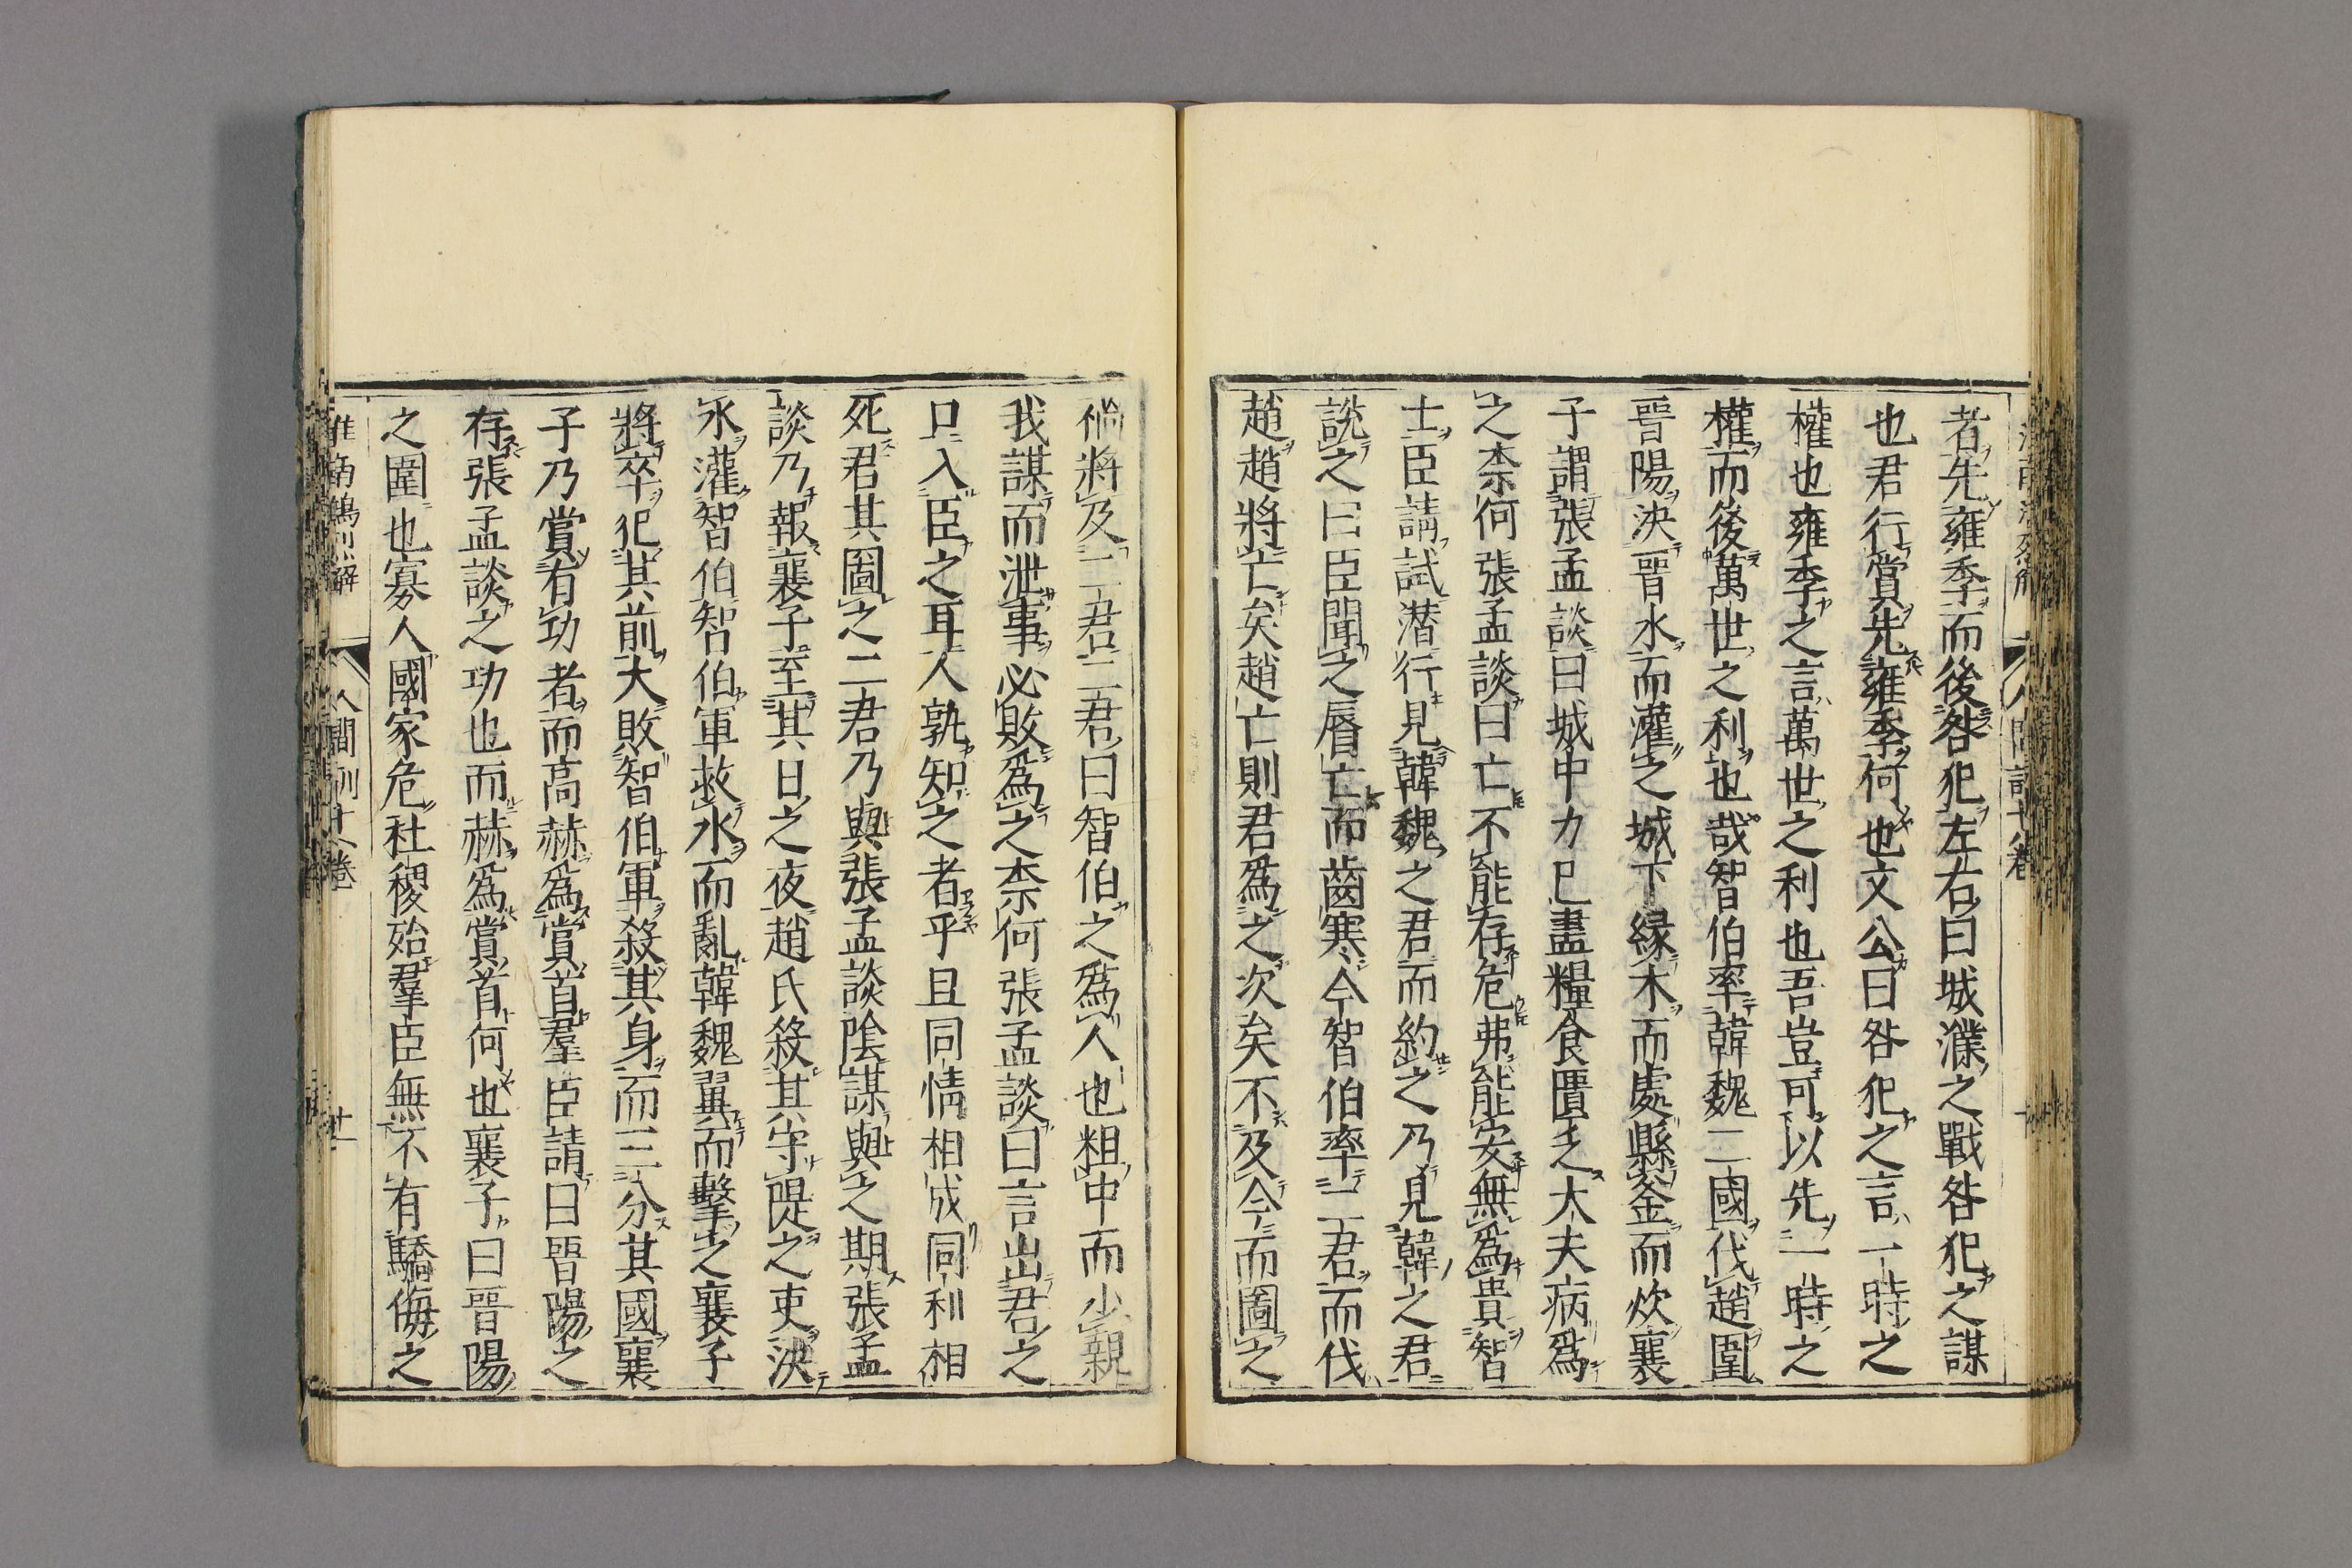 者先雍季而後咎犯左右曰城濮之戰咎犯之謀
也君行賞先雍季何也文公曰咎犯之言一時之
權也雍季之言萬世之利也吾豈可以先一時之
權而後萬世之利也哉智伯率韓魏二國伐趙圍
晉陽決晉水而灌之城下緣木而處縣釜而炊襄
子謂張孟談曰城中力已盡糧食匱乏大夫病爲
之柰何張孟談曰亡不能存危弗能安無爲貴智
士臣請試潜行見韓魏之君而約之乃見韓之君
說之曰臣聞之唇亡而齒寒今智伯率二君而伐
趙趙將亡矣趙亡則君爲之次矣不及今而圖之
禍將及二君二君曰智伯之爲人也粗中而少親
我謀而泄事必敗爲之柰何張孟談曰言出君之
口入臣之耳人孰知之者乎且同情相成同利相
死君其圖之二君乃與張孟談陰謀與之期張孟
談乃報襄子至其日之夜趙氏殺其守隄之吏決
水灌智伯智伯軍救水而亂韓魏翼而擊之襄子
將卒犯其前大敗智伯軍殺其身而三分其國襄
子乃賞有功者而高赫爲賞首羣臣請曰晉陽之
存張孟談之功也而赫爲賞首何也襄子曰晉陽
之圍也寡人國家危社稷殆羣臣無不有驕侮之
淮南鴻烈解 人間訓十八卷 廿一